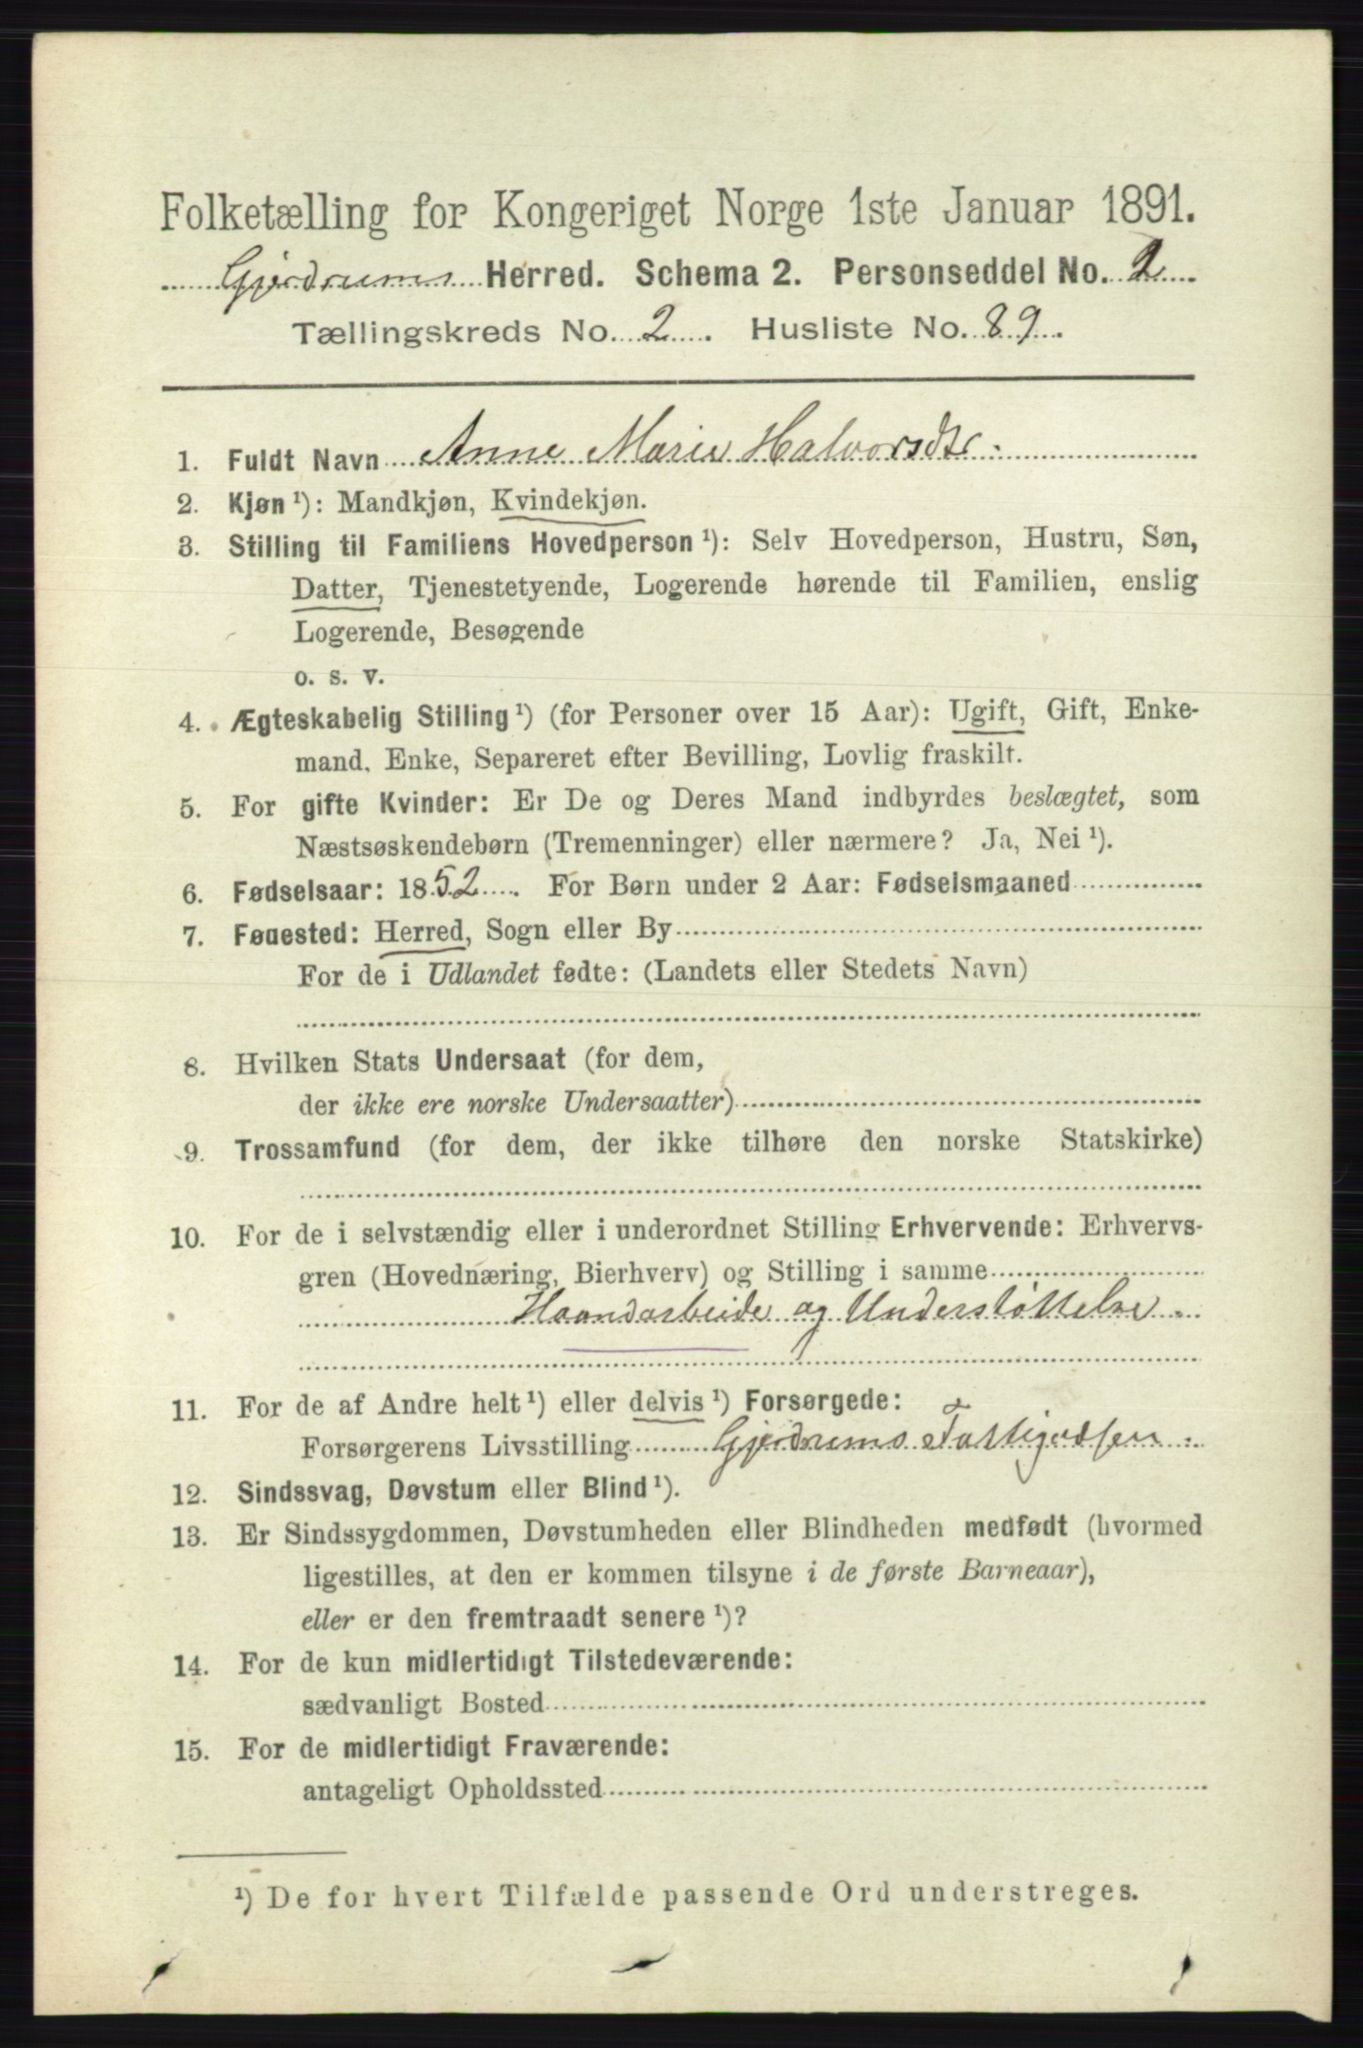 Folketælling for Kongeriget Norge 1ste Januar 1891.
Gjerdrums Herred. Schema 2. Personseddel No. 2
Tællingskreds No. 2. Husliste No. 89.
1. Fuldt Navn Anne Marie Halvorsdtr.
2. Kjøn ¹): Mandkjøn, Kvindekjøn.
3. Stilling til Familiens Hovedperson ¹): Selv Hovedperson, Hustru, Søn,
Datter, Tjenestetyende, Logerende hørende til Familien, enslig
Logerende, Besøgende
o. s. v.
4. Ægteskabelig Stilling ¹) (for Personer over 15 Aar): Ugift, Gift, Enke-
mand, Enke, Separeret efter Bevilling, Lovlig fraskilt.
5. For gifte Kvinder: Er De og Deres Mand indbyrdes beslægtet, som
Næstsøskendebørn (Tremenninger) eller nærmere? Ja, Nei ¹).
6. Fødselsaar: 1852. For Børn under 2 Aar: Fødselsmaaned
7. Fødested: Herred, Sogn eller By
For de i Udlandet fødte: (Landets eller Stedets Navn)
8. Hvilken Stats Undersaat (for dem,
der ikke ere norske Undersaatter)
9. Trossamfund (for dem, der ikke tilhøre den norske Statskirke)
10. For de i selvstændig eller i underordnet Stilling Erhvervende: Erhvervs-
gren (Hovednæring, Bierhverv) og Stilling i samme
Haandarbeide og Understøttelse.
11. For de af Andre helt ¹) eller delvis ¹) Forsørgede:
Forsørgerens Livsstilling Gjerdrums Fattigvæsen.
12. Sindssvag, Døvstum eller Blind ¹).
13. Er Sindssygdommen, Døvstumheden eller Blindheden medfødt (hvormed
ligestilles, at den er kommen tilsyne i de første Barneaar),
eller er den fremtraadt senere ¹)?
14. For de kun midlertidigt Tilstedeværende:
sædvanligt Bosted
15. For de midlertidigt Fraværende:
antageligt Opholdssted
¹) De for hvert Tilfælde passende Ord understreges.